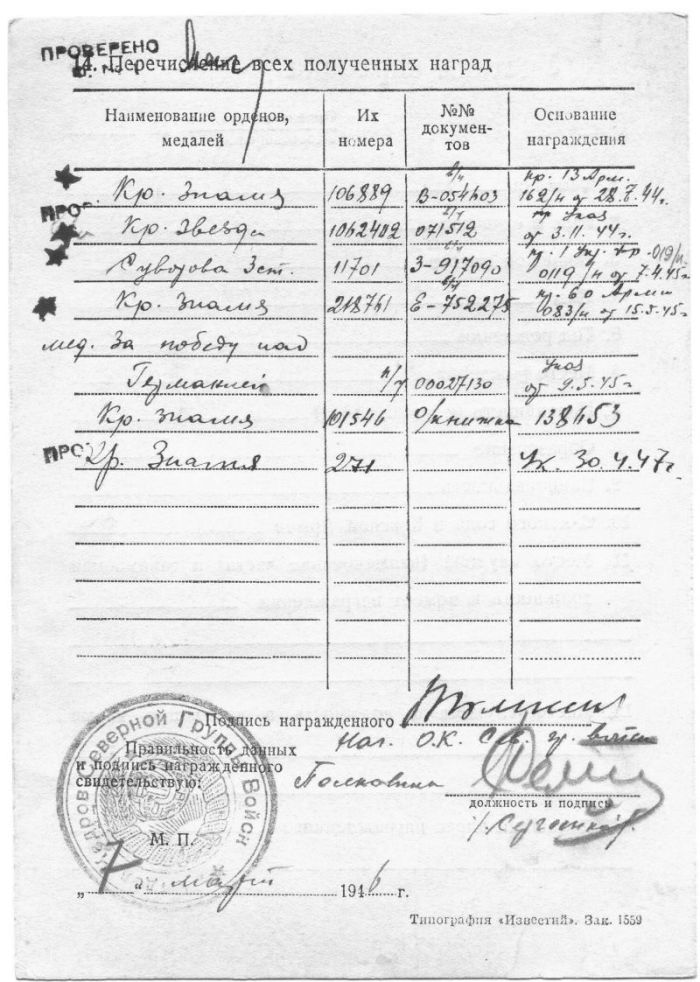 ПРОВЕРЕНО
14. Перечисление всех полученных наград
Наименование орденов, медалей
Их номера
№№ документов
Основание награждения
Кр. Знамя 106889 В-054603 пр. 13 Арм. 162/н от 28.7.44г.
Кр. Звезда 1062402 071512 Указ от 3.11.44г.
Суворова 3 ст. 11701 З-917090 пр. 1 Укр. Фр. 019/н 0119/н от 7.4.45г
Кр. Знамя 218761 Е-752275 пр. 60 Армии 083/н от 15.5.45г
мед. За победу над
Германией н/у 00027130 Указ от 9.5.45г
Кр. знамя 101546 о/книжка 138653
ПРО
Кр. Знамя 271 Ук. 30.4.47г.
Подпись награжденного
Нач. О.К. Сев. гр. войск
Правильность данных
и подпись награжденного
свидетельствую:
Полковник
должность и подпись
Отдел Кадров Северной Группы Войск
М. П.
„7" март 1946 г.
Типография «Известий». Зак. 1559